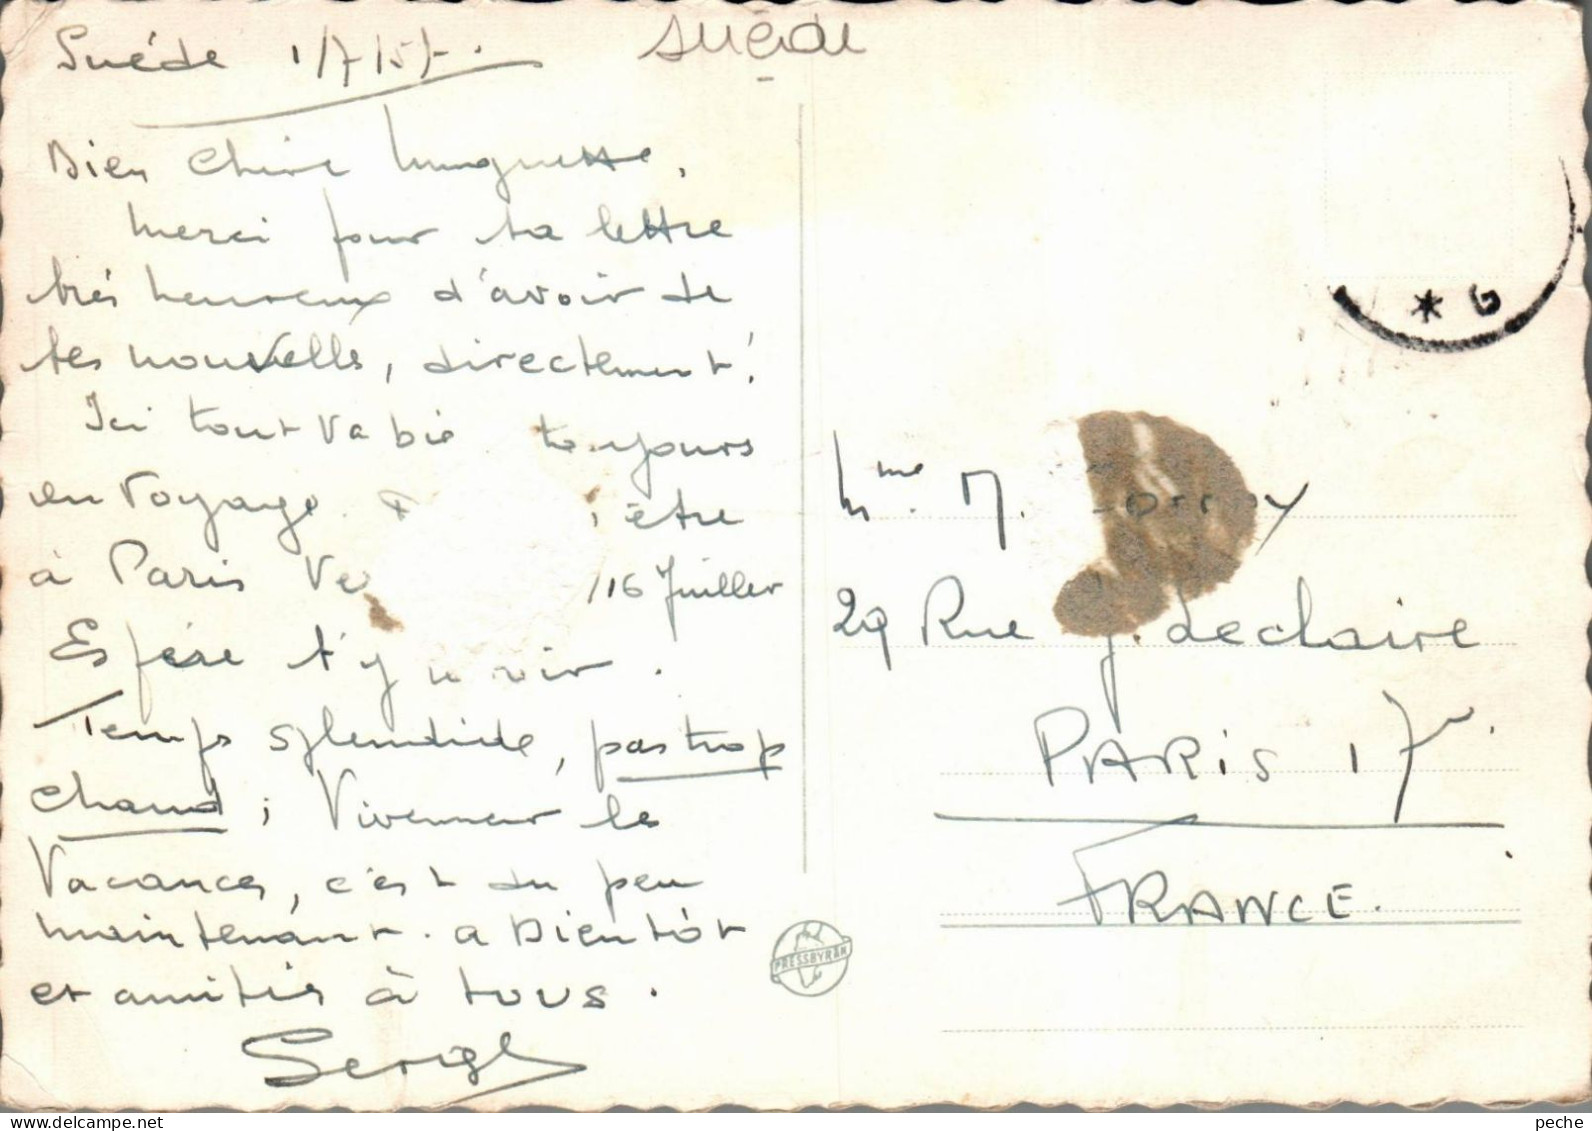 Suéde 1/7/57.
suede
Bien Chère Muguette,
Merci pour ta lettre
très heureux d'avoir de
tes nouvelles, directement!
Ici tout va bie toujours
en voyage. être
à Paris Ve /16 Juillet
Espère t'y voir.
Temps splendide, pas trop
chaud; Vivement les
Vacances, c'est du peu
maintenant. a Bientôt
et amitiés à tous.
Serge
* G
Mme. M.
29 Rue J. Leclaire
PARIS 17
FRANCE.
PRESSBYRÅN
peche